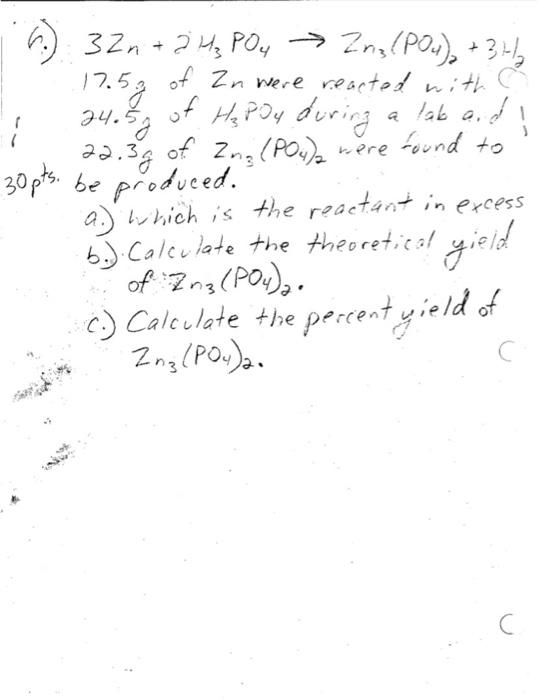 6.) 3Zn + 2H₃PO₄ → Zn₃(PO₄)₂ + 3H₂
17.5g of Zn were reacted with
24.5g of H₃PO₄ during a lab and
22.3g of Zn₃(PO₄)₂ were found to
30pts. be produced.
a.) Which is the reactant in excess
b.) Calculate the theoretical yield
of Zn₃(PO₄)₂.
c.) Calculate the percent yield of
Zn₃(PO₄)₂.